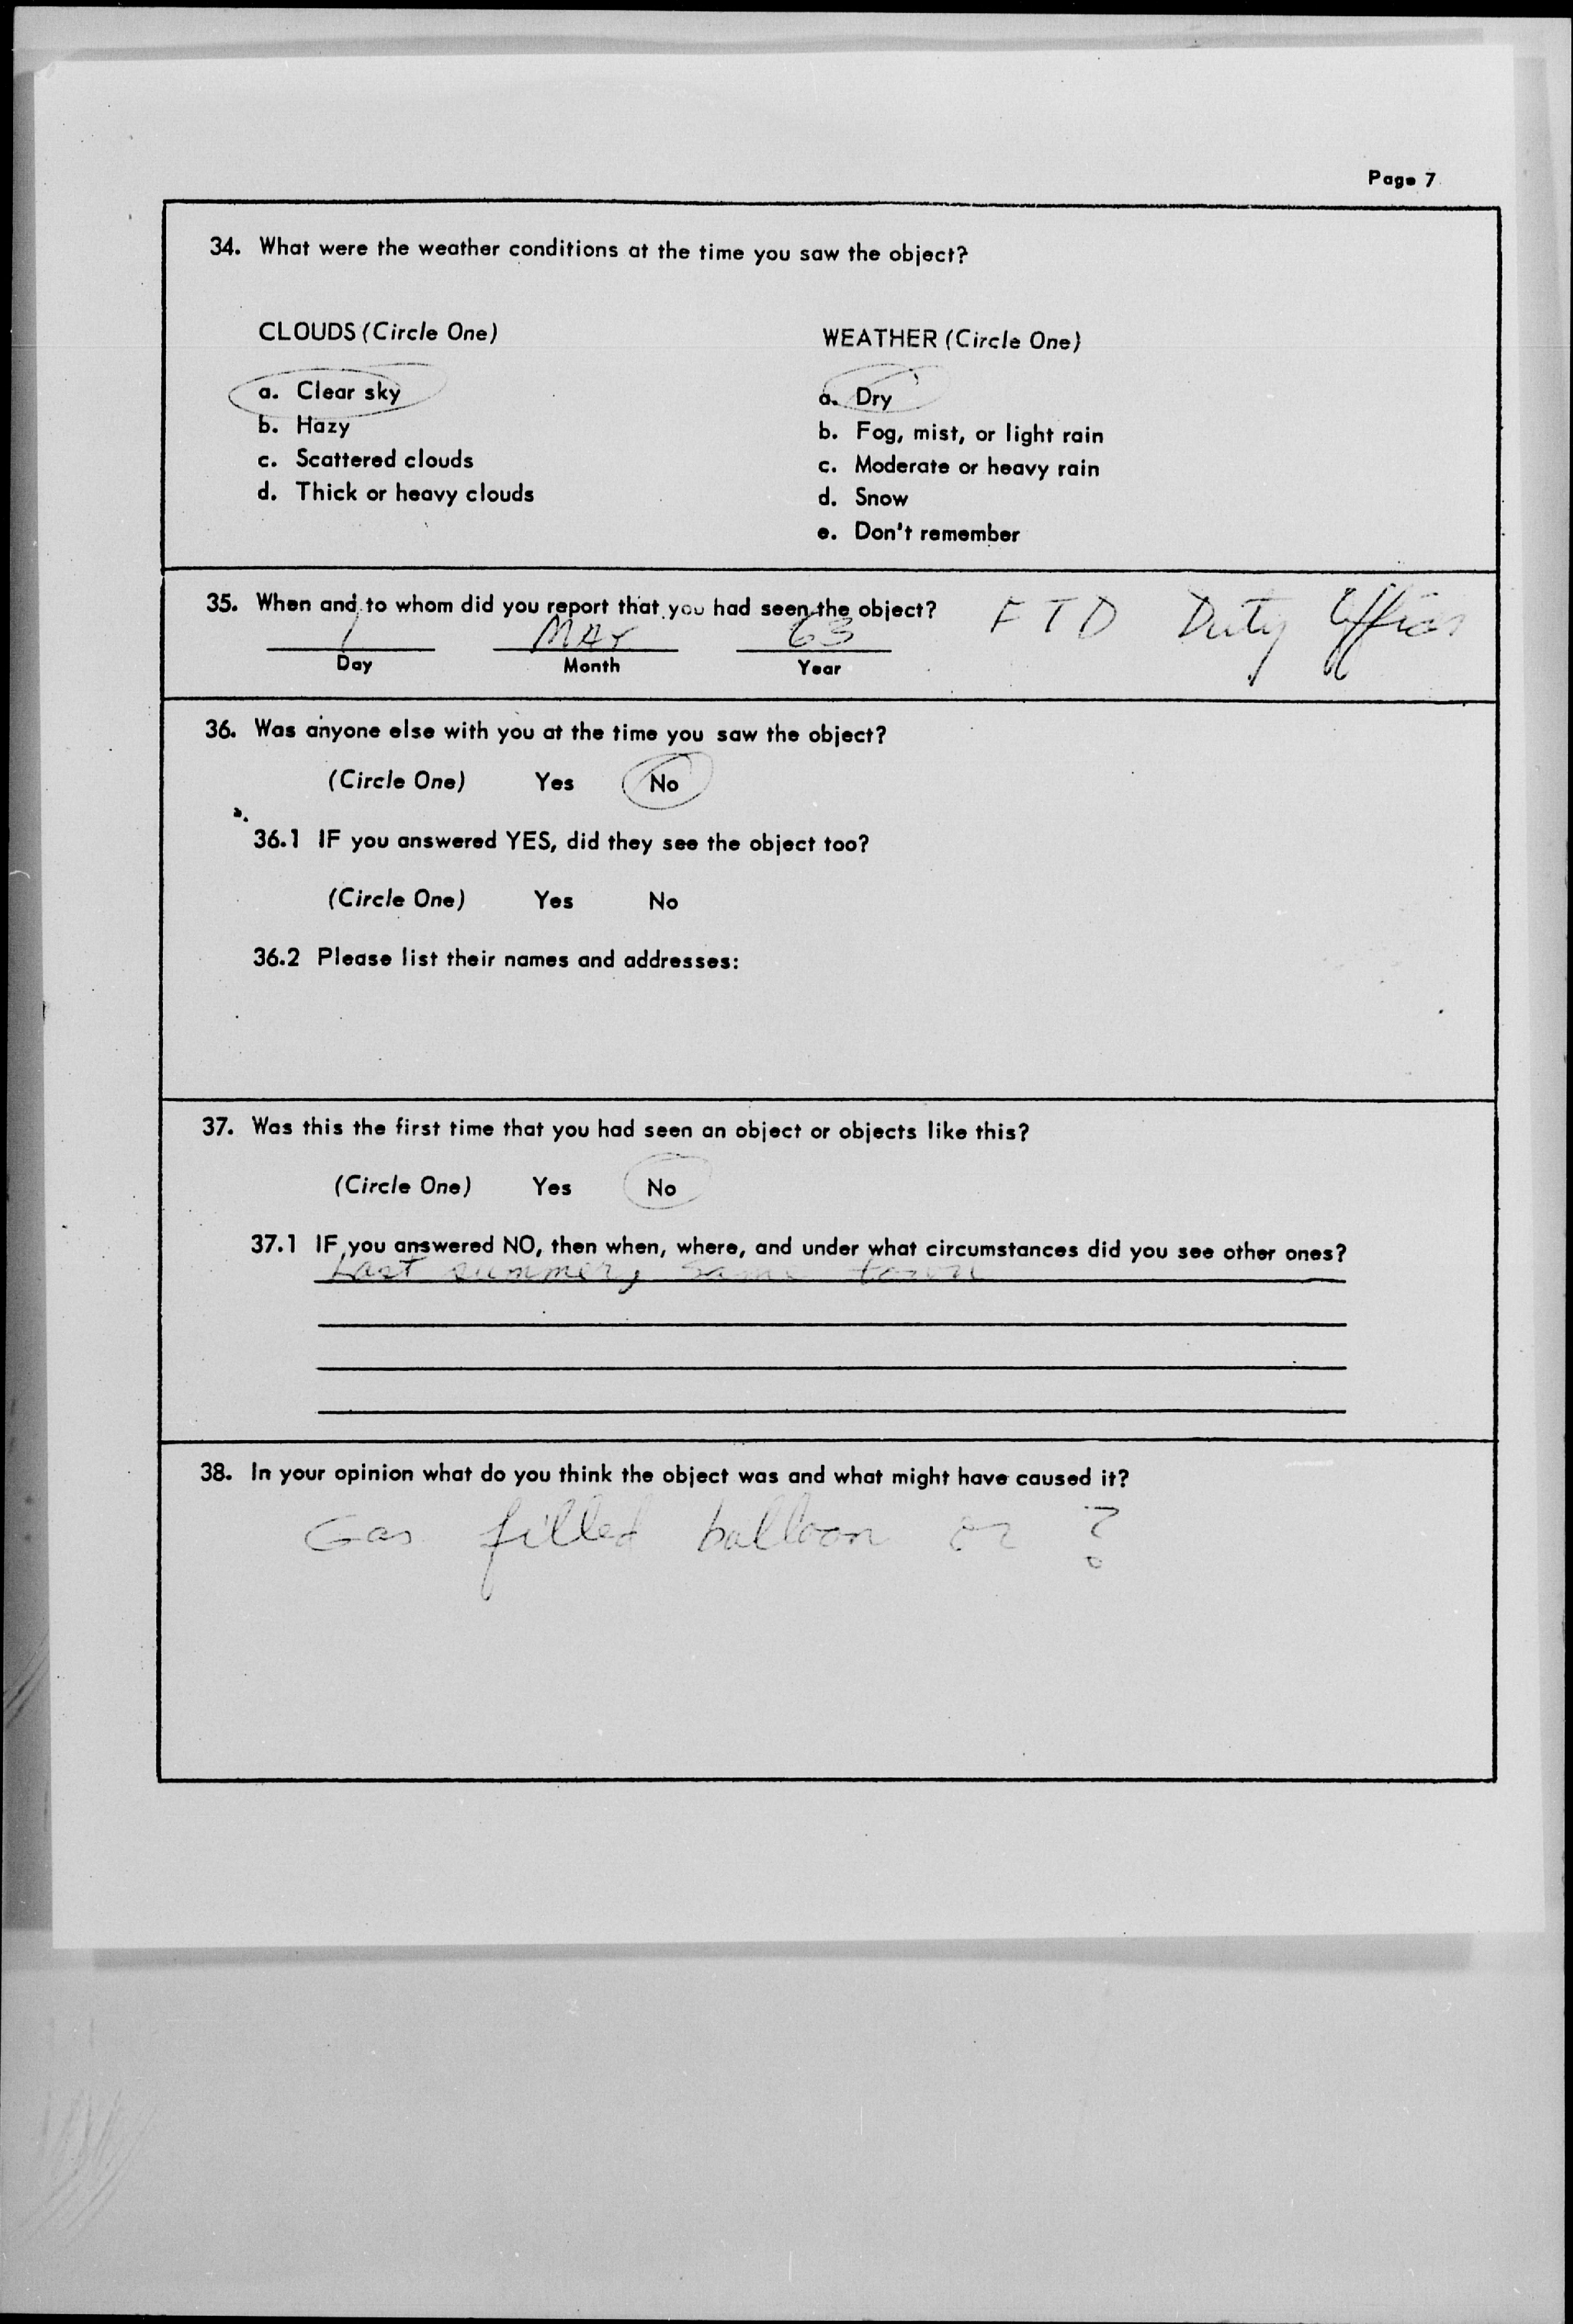 Page 7
34. What were the weather conditions at the time you saw the object?
CLOUDS (Circle One)
a. Clear sky
b. Hazy
c. Scattered clouds
d. Thick or heavy clouds
WEATHER (Circle One)
a. Dry
b. Fog, mist, or light rain
c. Moderate or heavy rain
d. Snow
e. Don't remember
35. When and to whom did you report that you had seen the object? FTD Duty Officer
1 MAY 63
Day Month Year
36. Was anyone else with you at the time you saw the object?
(Circle One) Yes No
36.1 IF you answered YES, did they see the object too?
(Circle One) Yes No
36.2 Please list their names and addresses:
37. Was this the first time that you had seen an object or objects like this?
(Circle One) Yes No
37.1 IF you answered NO, then when, where, and under what circumstances did you see other ones?
Last summer, same town
38. In your opinion what do you think the object was and what might have caused it?
Gas filled balloon or ?